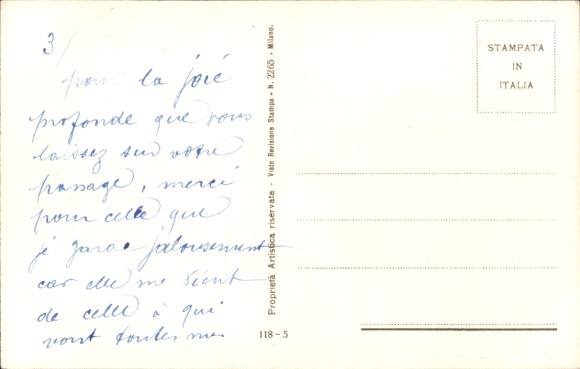 3/
pour la joie
profonde que vous
laissez sur votre
passage, merci
pour celle que
je garde jalousement
car elle me vient
de celle à qui
vont toutes mes
Proprietà Artistica riservata - Visto Revisione Stampa - N. 2265 - Milano.
118-5
STAMPATA
IN
ITALIA